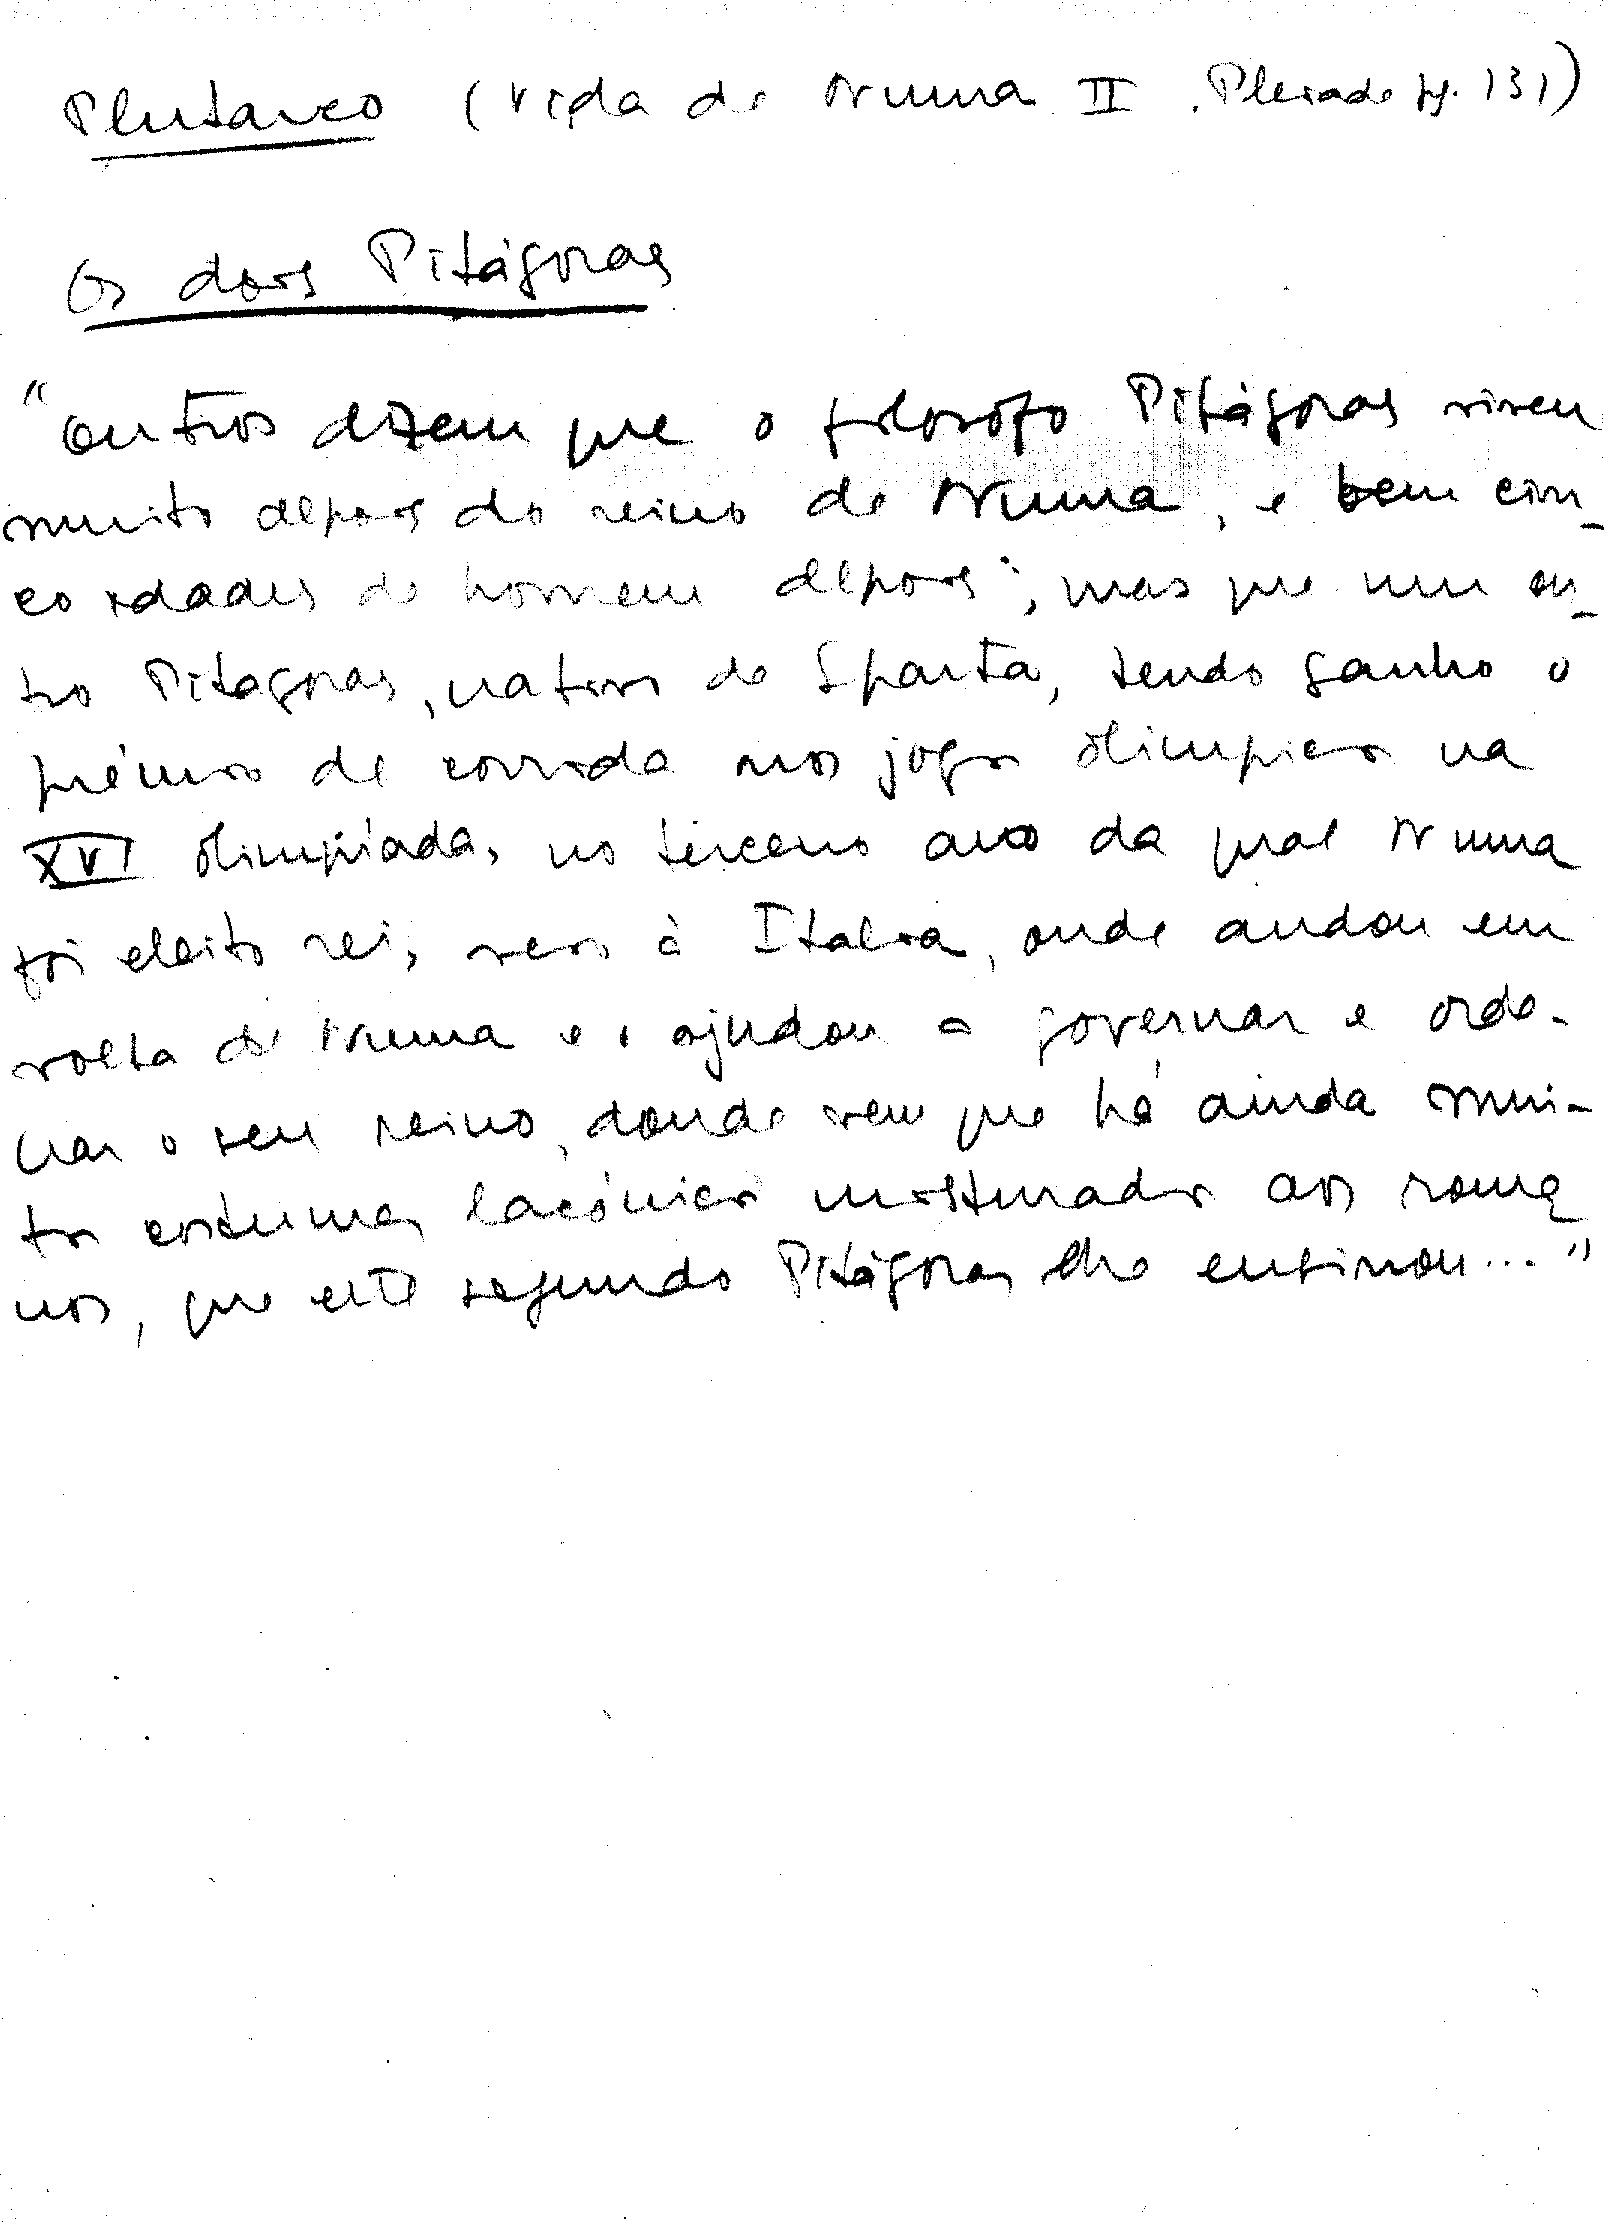 Plutarco (Vida de Numa II. Pleiade pg. 131)
Os dois Pitágoras
"Outros dizem que o filósofo Pitágoras viveu
muito depois do reino de Numa, e bem cin-
co idades de homem depois; mas que um ou-
tro Pitagoras, nativo de Sparta, tendo ganho o
prémio de corrida nos jogos olimpicos na
XVI olimpíada, no terceiro ano da qual Numa
foi eleito rei, veio à Italia, onde andou em
volta de Numa e o ajudou a governar e orde-
nar o seu reino, donde vem que há ainda mui-
tos costumes lacónicos misturados aos roma
nos, que este segundo Pitágoras lhe ensinou..."